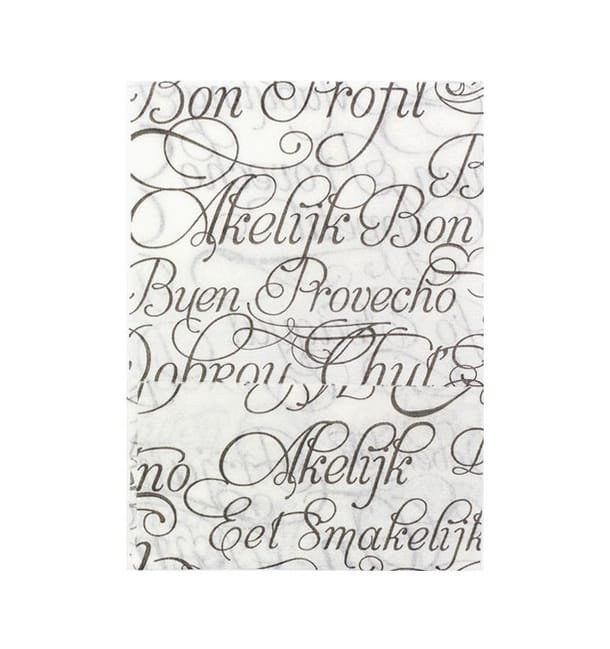 Bon Profit
Akelijk Bon
Buen Provecho
Dobrou Chuť
no Akelijk
Eet Smakelijk